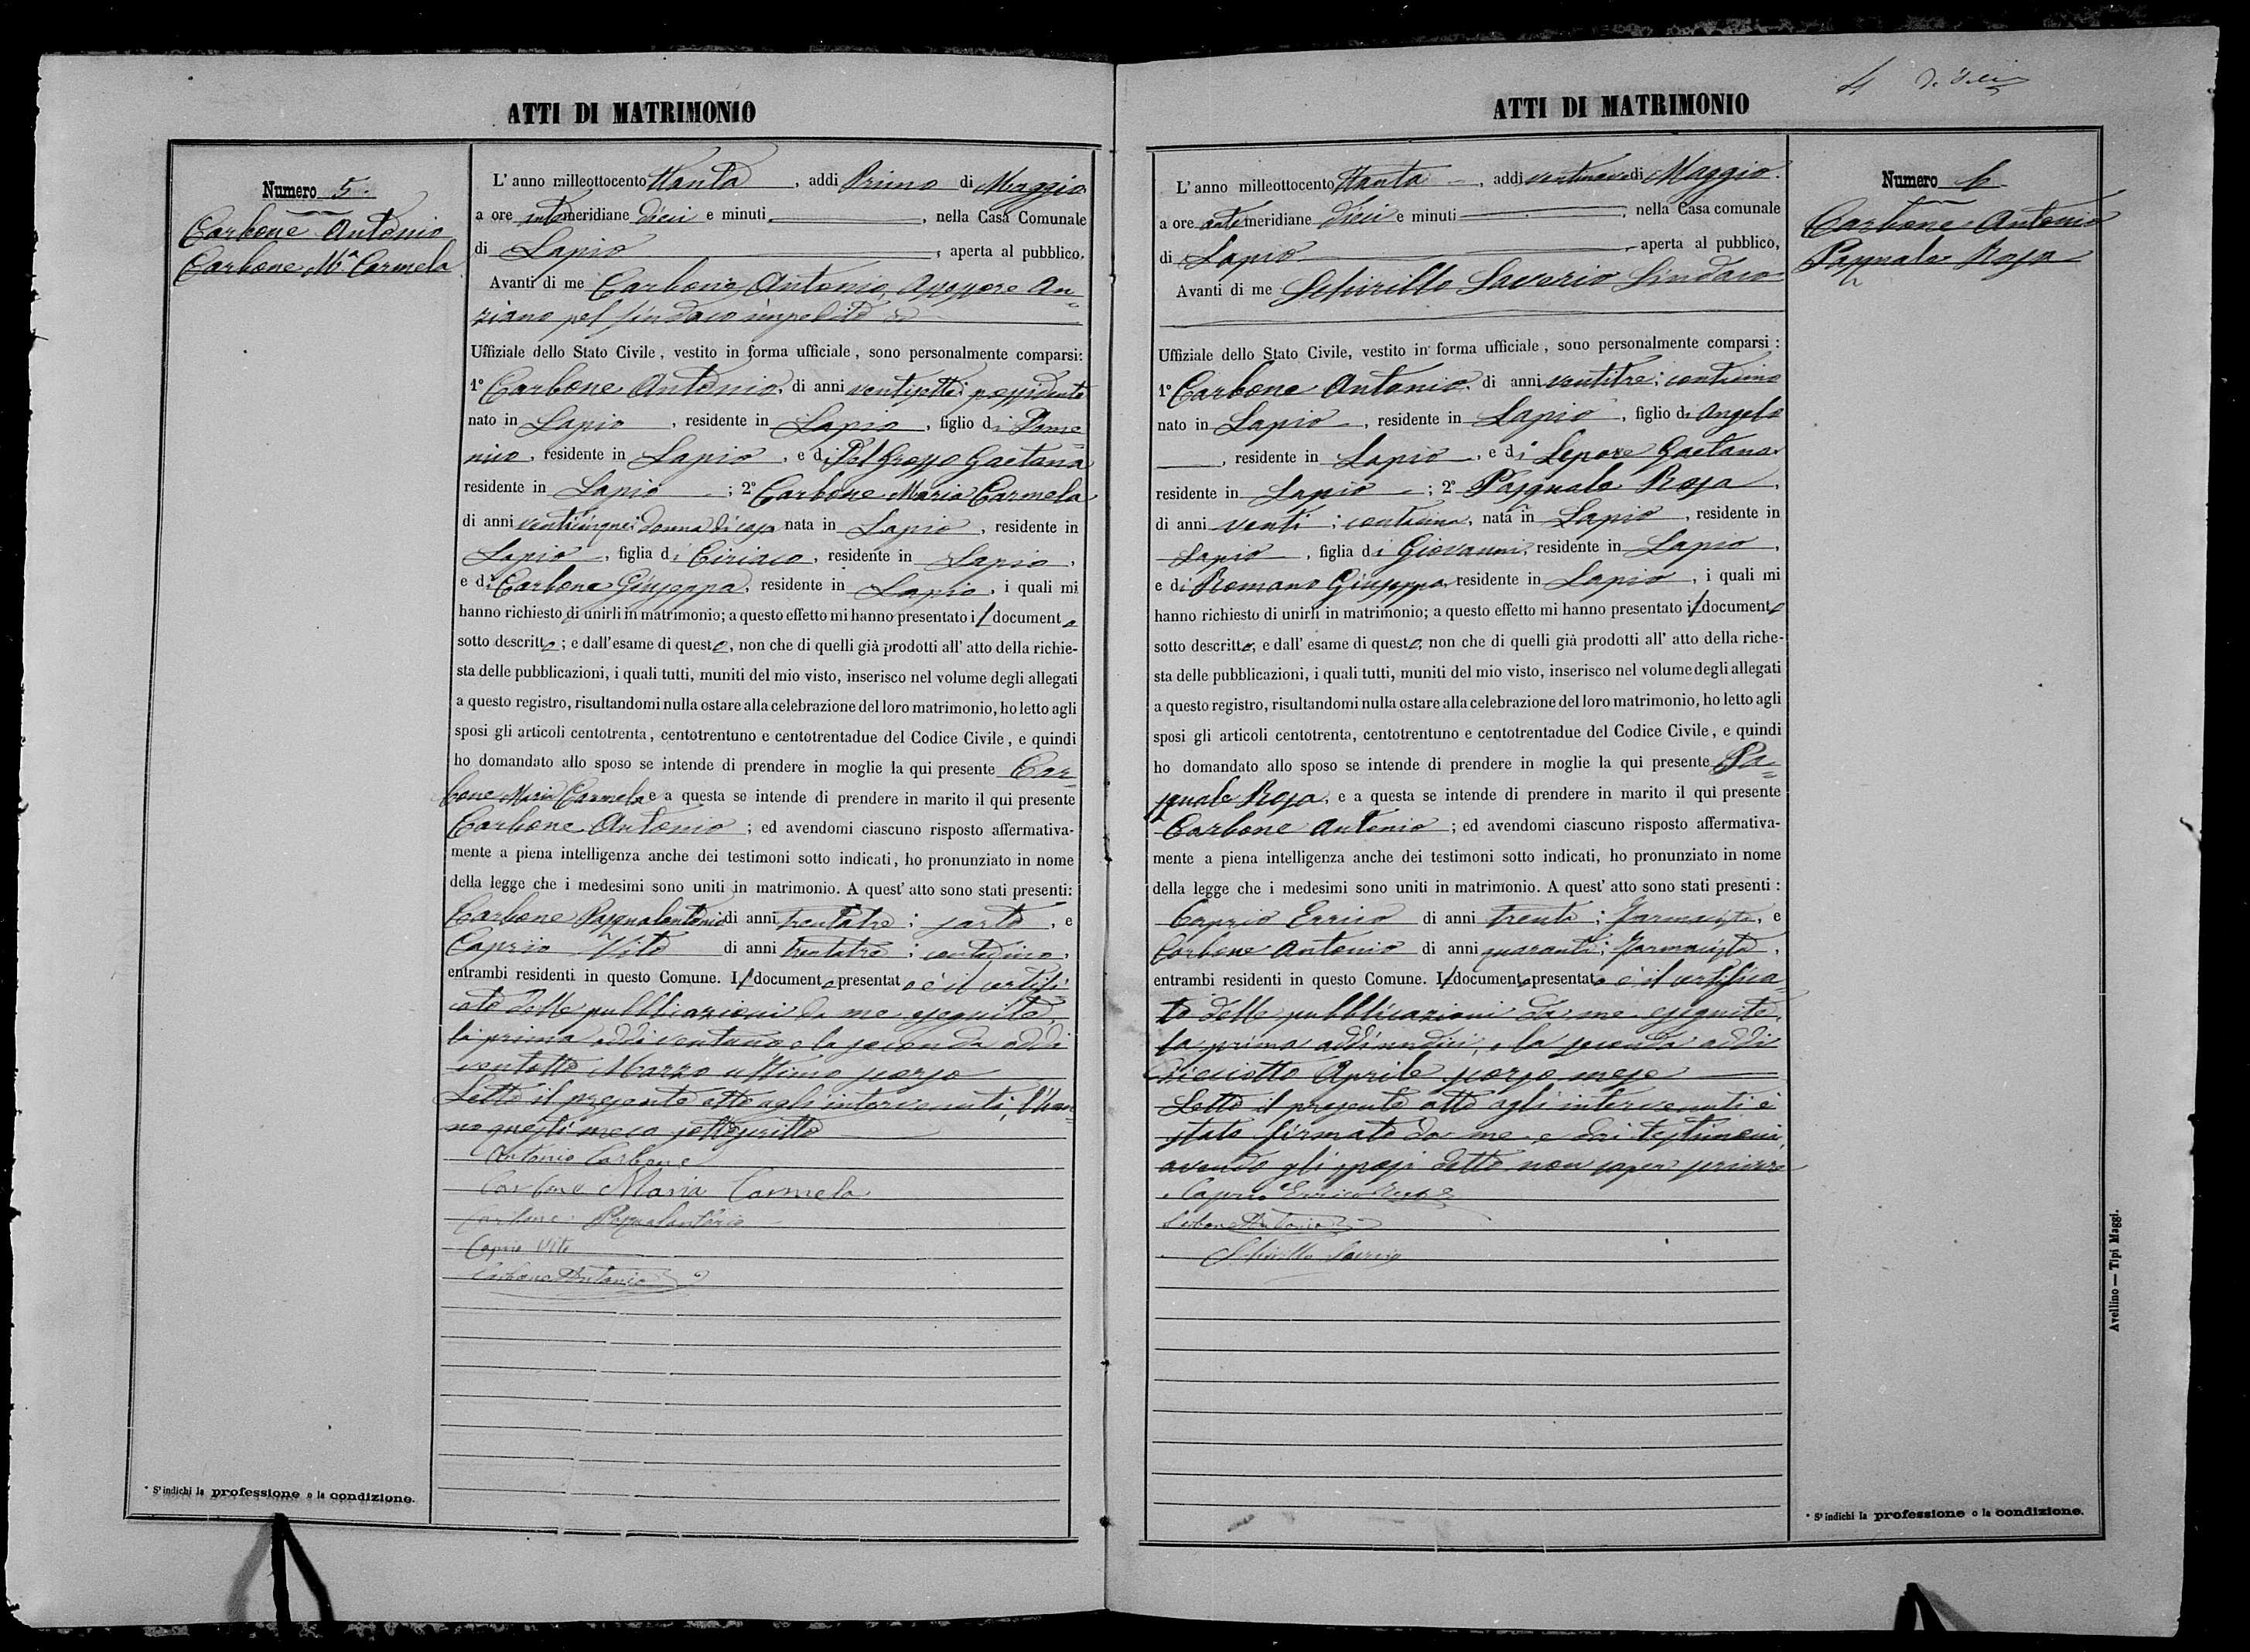 ATTI DI MATRIMONIO
Numero 5.
Carbone Antonio
Carbone Mª Carmela
L' anno milleottocento ttanta, addì Primo di Maggio
a ore antemeridiane dieci e minuti, nella Casa Comunale
di Lapio, aperta al pubblico.
Avanti di me Carbone Antonio, Assessore An=
ziano pel Sindaco impedito
Uffiziale dello Stato Civile, vestito in forma ufficiale, sono personalmente comparsi:
1º Carbone Antonio, di anni ventisette; possidente
nato in Lapio, residente in Lapio, figlio di Dome=
nico, residente in Lapio, e di Del Grosso Gaetana
residente in Lapio; 2º Carbone Maria Carmela
di anni venticinque; donna di casa nata in Lapio, residente in
Lapio, figlia di Ciriaco, residente in Lapio,
e di Carbone Giuseppa, residente in Lapio, i quali mi
hanno richiesto di unirli in matrimonio; a questo effetto mi hanno presentato il documento
sotto descritto; e dall'esame di questo, non che di quelli già prodotti all' atto della richie-
sta delle pubblicazioni, i quali tutti, muniti del mio visto, inserisco nel volume degli allegati
a questo registro, risultandomi nulla ostare alla celebrazione del loro matrimonio, ho letto agli
sposi gli articoli centotrenta, centotrentuno e centotrentadue del Codice Civile, e quindi
ho domandato allo sposo se intende di prendere in moglie la qui presente Car=
bone Maria Carmela e a questa se intende di prendere in marito il qui presente
Carbone Antonio; ed avendomi ciascuno risposto affermativa-
mente a piena intelligenza anche dei testimoni sotto indicati, ho pronunziato in nome
della legge che i medesimi sono uniti in matrimonio. A quest' atto sono stati presenti:
Carbone Pasqualantonio di anni trentatre; sarto, e
Caprio Vito di anni trentatre; contadino,
entrambi residenti in questo Comune. Il documento presentato è il certifi
cato delle pubblicazioni da me eseguite,
la prima addì ventuno e la seconda addì
ventotto Marzo ultimo scorso
Letto il presente atto agli intervenuti, l'han=
no questi meco sottoscritto
Antonio Carbone
Carbone Maria Carmela
Carbone Pasqualantonio
Caprio Vito
Carbone Antonio
* S' indichi la professione o la condizione.
ATTI DI MATRIMONIO
4
Numero 6
Carbone Antonio
Pasquale Rosa
L' anno milleottocento ttanta, addì ventinove di Maggio
a ore antemeridiane dieci e minuti, nella Casa comunale
di Lapio, aperta al pubblico,
Avanti di me Schirillo Saverio Sindaco
Uffiziale dello Stato Civile, vestito in forma ufficiale, sono personalmente comparsi:
1º Carbone Antonio, di anni ventitre; contadino
nato in Lapio, residente in Lapio, figlio di Angelo
, residente in Lapio, e di Lepore Gaetana
residente in Lapio; 2º Pasquale Rosa,
di anni venti; contadina, nata in Lapio, residente in
Lapio, figlia di Giovanni, residente in Lapio,
e di Romano Giuseppa, residente in Lapio, i quali mi
hanno richiesto di unirli in matrimonio; a questo effetto mi hanno presentato il documento
sotto descritto; e dall' esame di questo, non che di quelli già prodotti all' atto della riche-
sta delle pubblicazioni, i quali tutti, muniti del mio visto, inserisco nel volume degli allegati
a questo registro, risultandomi nulla ostare alla celebrazione del loro matrimonio, ho letto agli
sposi gli articoli centotrenta, centotrentuno e centotrentadue del Codice Civile, e quindi
ho domandato allo sposo se intende di prendere in moglie la qui presente Pa=
squale Rosa, e a questa se intende di prendere in marito il qui presente
Carbone Antonio; ed avendomi ciascuno risposto affermativa-
mente a piena intelligenza anche dei testimoni sotto indicati, ho pronunziato in nome
della legge che i medesimi sono uniti in matrimonio. A quest' atto sono stati presenti:
Caprio Errico di anni trenta; Farmacista, e
Carbone Antonio di anni quaranta; Farmacista,
entrambi residenti in questo Comune. Il documento presentato è il certifica=
to delle pubblicazioni da me eseguite,
la prima addì undici, e la seconda addì
dieciotto Aprile scorso mese
Letto il presente atto agli intervenuti, è
stato firmato da me e dai testimoni,
avendo gli sposi detto non saper scrivere
Caprio Errico
Carbone Antonio
Schirillo Saverio
* S' indichi la professione o la condizione.
Avellino — Tipi Maggi.